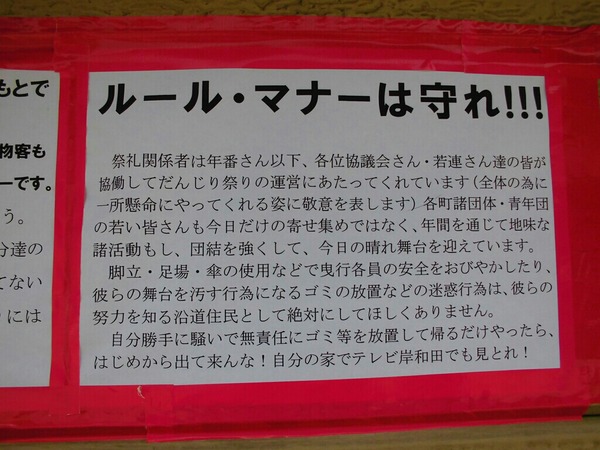 もとで
物客も
ーです。
う。
分達の
てない
りには
ルール・マナーは守れ!!!
祭礼関係者は年番さん以下、各位協議会さん・若連さん達の皆が
協働してだんじり祭りの運営にあたってくれています(全体の為に
一所懸命にやってくれる姿に敬意を表します)各町諸団体・青年団
の若い皆さんも今日だけの寄せ集めではなく、年間を通じて地味な
諸活動もし、団結を強くして、今日の晴れ舞台を迎えています。
脚立・足場・傘の使用などで曳行各員の安全をおびやかしたり、
彼らの舞台を汚す行為になるゴミの放置などの迷惑行為は、彼らの
努力を知る沿道住民として絶対にしてほしくありません。
自分勝手に騒いで無責任にゴミ等を放置して帰るだけやったら、
はじめから出て来んな！自分の家でテレビ岸和田でも見とれ！